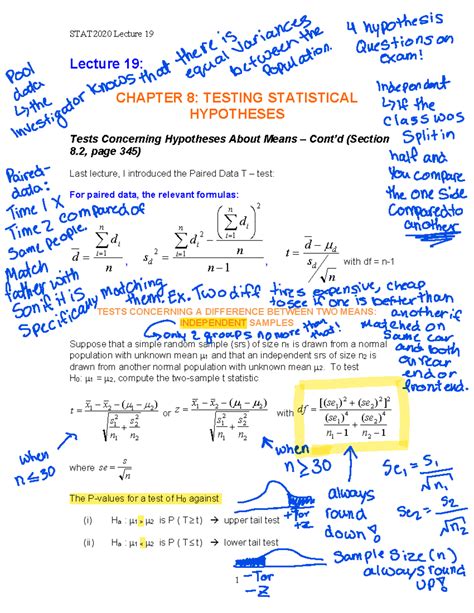 STAT2020 Lecture 19
Lecture 19:
Pool
data
↳ the
investigator knows that there is
equal variances
between the
population.
4 hypothesis
Questions on
exam!
CHAPTER 8: TESTING STATISTICAL
HYPOTHESES
Independent
↳ If the
class was
split in
half and
you compare
the one side
compared to
another
Tests Concerning Hypotheses About Means – Cont'd (Section
8.2, page 345)
Last lecture, I introduced the Paired Data T – test:
For paired data, the relevant formulas:
Paired-
data:
Time 1 X
Time 2 compared of
Same people.
Match
father with
Son if it is
Specifically matching
them. Ex. Two diff tires expensive, cheap
to see if one is better than
another if
matched on
same car
and both
on rear
end or
front end.
d̄ = Σ dᵢ / n , s_d² = (Σ dᵢ² − (Σ dᵢ)² / n) / (n − 1) , t = (d̄ − μ_d) / (s_d / √n) with df = n-1
TESTS CONCERNING A DIFFERENCE BETWEEN TWO MEANS:
INDEPENDENT SAMPLES
↳ only 2 groups no more than that!
Suppose that a simple random sample (srs) of size n₁ is drawn from a normal
population with unknown mean μ₁ and that an independent srs of size n₂ is
drawn from another normal population with unknown mean μ₂. To test
H₀: μ₁ = μ₂, compute the two-sample t statistic
t = (x̄₁ − x̄₂ − (μ₁ − μ₂)) / √(s₁²/n₁ + s₂²/n₂) or z = (x̄₁ − x̄₂ − (μ₁ − μ₂)) / √(s₁²/n₁ + s₂²/n₂) with df = [(se₁)² + (se₂)²]² / ((se₁)⁴/(n₁ − 1) + (se₂)⁴/(n₂ − 1))
when
n ≤ 30
when
n ≥ 30
where se = s/√n
always
round
down!
Se₁ = S₁/√n₁
Se₂ = S₂/√n₂
The P-values for a test of H₀ against
(i) Hₐ : μ₁ > μ₂ is P ( T ≥ t) → upper tail test
+T or
+Z
(ii) Hₐ : μ₁ < μ₂ is P ( T ≤ t) → lower tail test
-T or
-Z
Sample Size (n)
always round
UP!
1